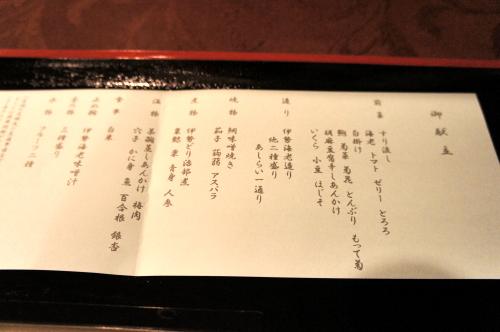 御献立
前菜
すり流し
海老 トマト ゼリー とろろ
白掛け
鮑 菊菜 菊花 とんぶり もって菊
胡麻豆腐辛しあんかけ
いくら 小豆 ほじそ
造り
伊勢海老造り
他二種盛り
あしらい一通り
焼物
鯛味噌焼き
茄子 蒟蒻 アスパラ
煮物
伊勢どり治部煮
粟麩 栗 青身 人参
温物
茶碗蒸しあんかけ 梅肉
穴子 かに身 亀 百合根 銀杏
食事
白米
止椀
伊勢海老味噌汁
香の物
三種盛り
水物
フルーツ二種